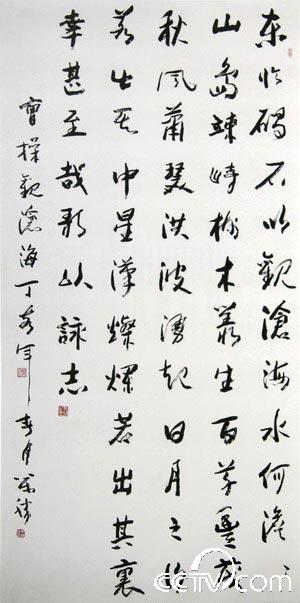 東臨碣石以觀滄海水何澹〻
山島竦峙樹木叢生百草豐茂
秋風蕭瑟洪波湧起日月之行
若出其中星漢燦爛若出其裏
幸甚至哉歌以詠志
曹操觀滄海丁亥年春月
cctv.com